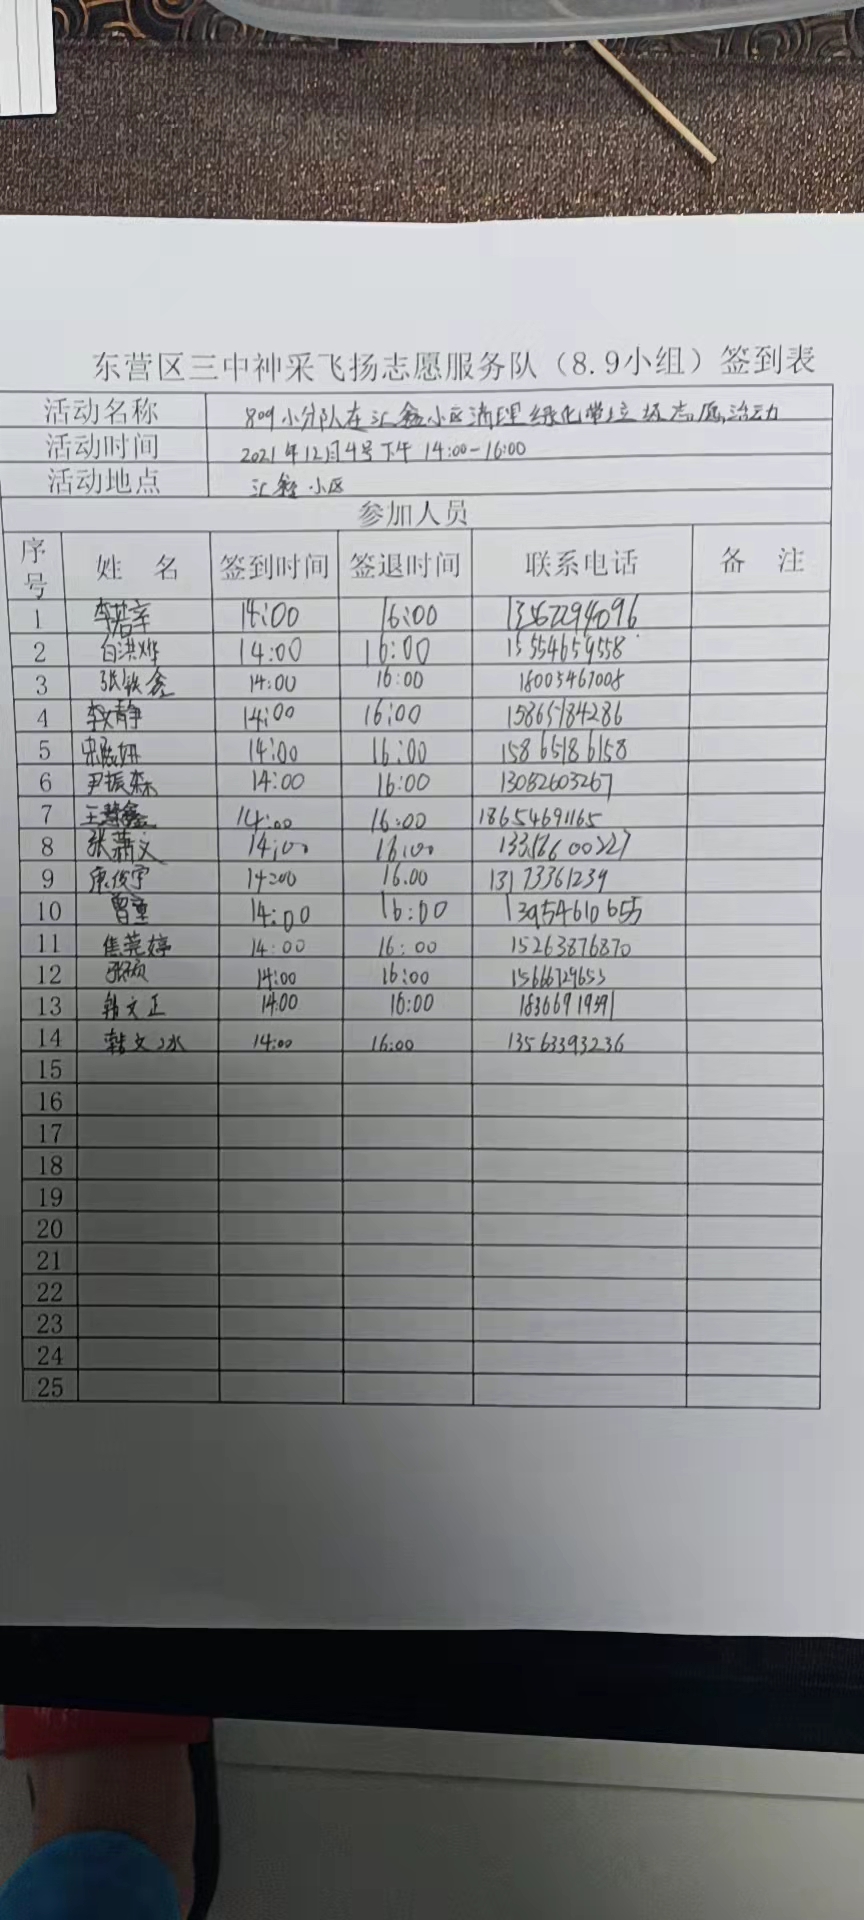 东营区三中神采飞扬志愿服务队（8.9小组）签到表
活动名称 809小分队在汇鑫小区清理绿化带垃圾志愿活动
活动时间 2021年12月4号下午 14:00-16:00
活动地点 汇鑫小区
参加人员
序号 姓 名 签到时间 签退时间 联系电话 备 注
1 14:00 16:00 13562294096
2 白洪烨 14:00 16:00 15554659558
3 张轶鑫 14:00 16:00 18005467008
4 静 14:00 16:00 15865184286
5 14:00 16:00 15865186158
6 尹振森 14:00 16:00 13082603267
7 王慧鑫 14:00 16:00 18654691165
8 张潇文 14:00 16:00 13358600227
9 俊宇 14:00 16.00 13173361239
10 曾重 14:00 16:00 13954610655
11 焦莞婷 14:00 16:00 15263876870
12 张硕 14:00 16:00 15666729653
13 韩文正 14:00 16:00
14 韩文冰 14:00 16:00 13563393236
15
16
17
18
19
20
21
22
23
24
25